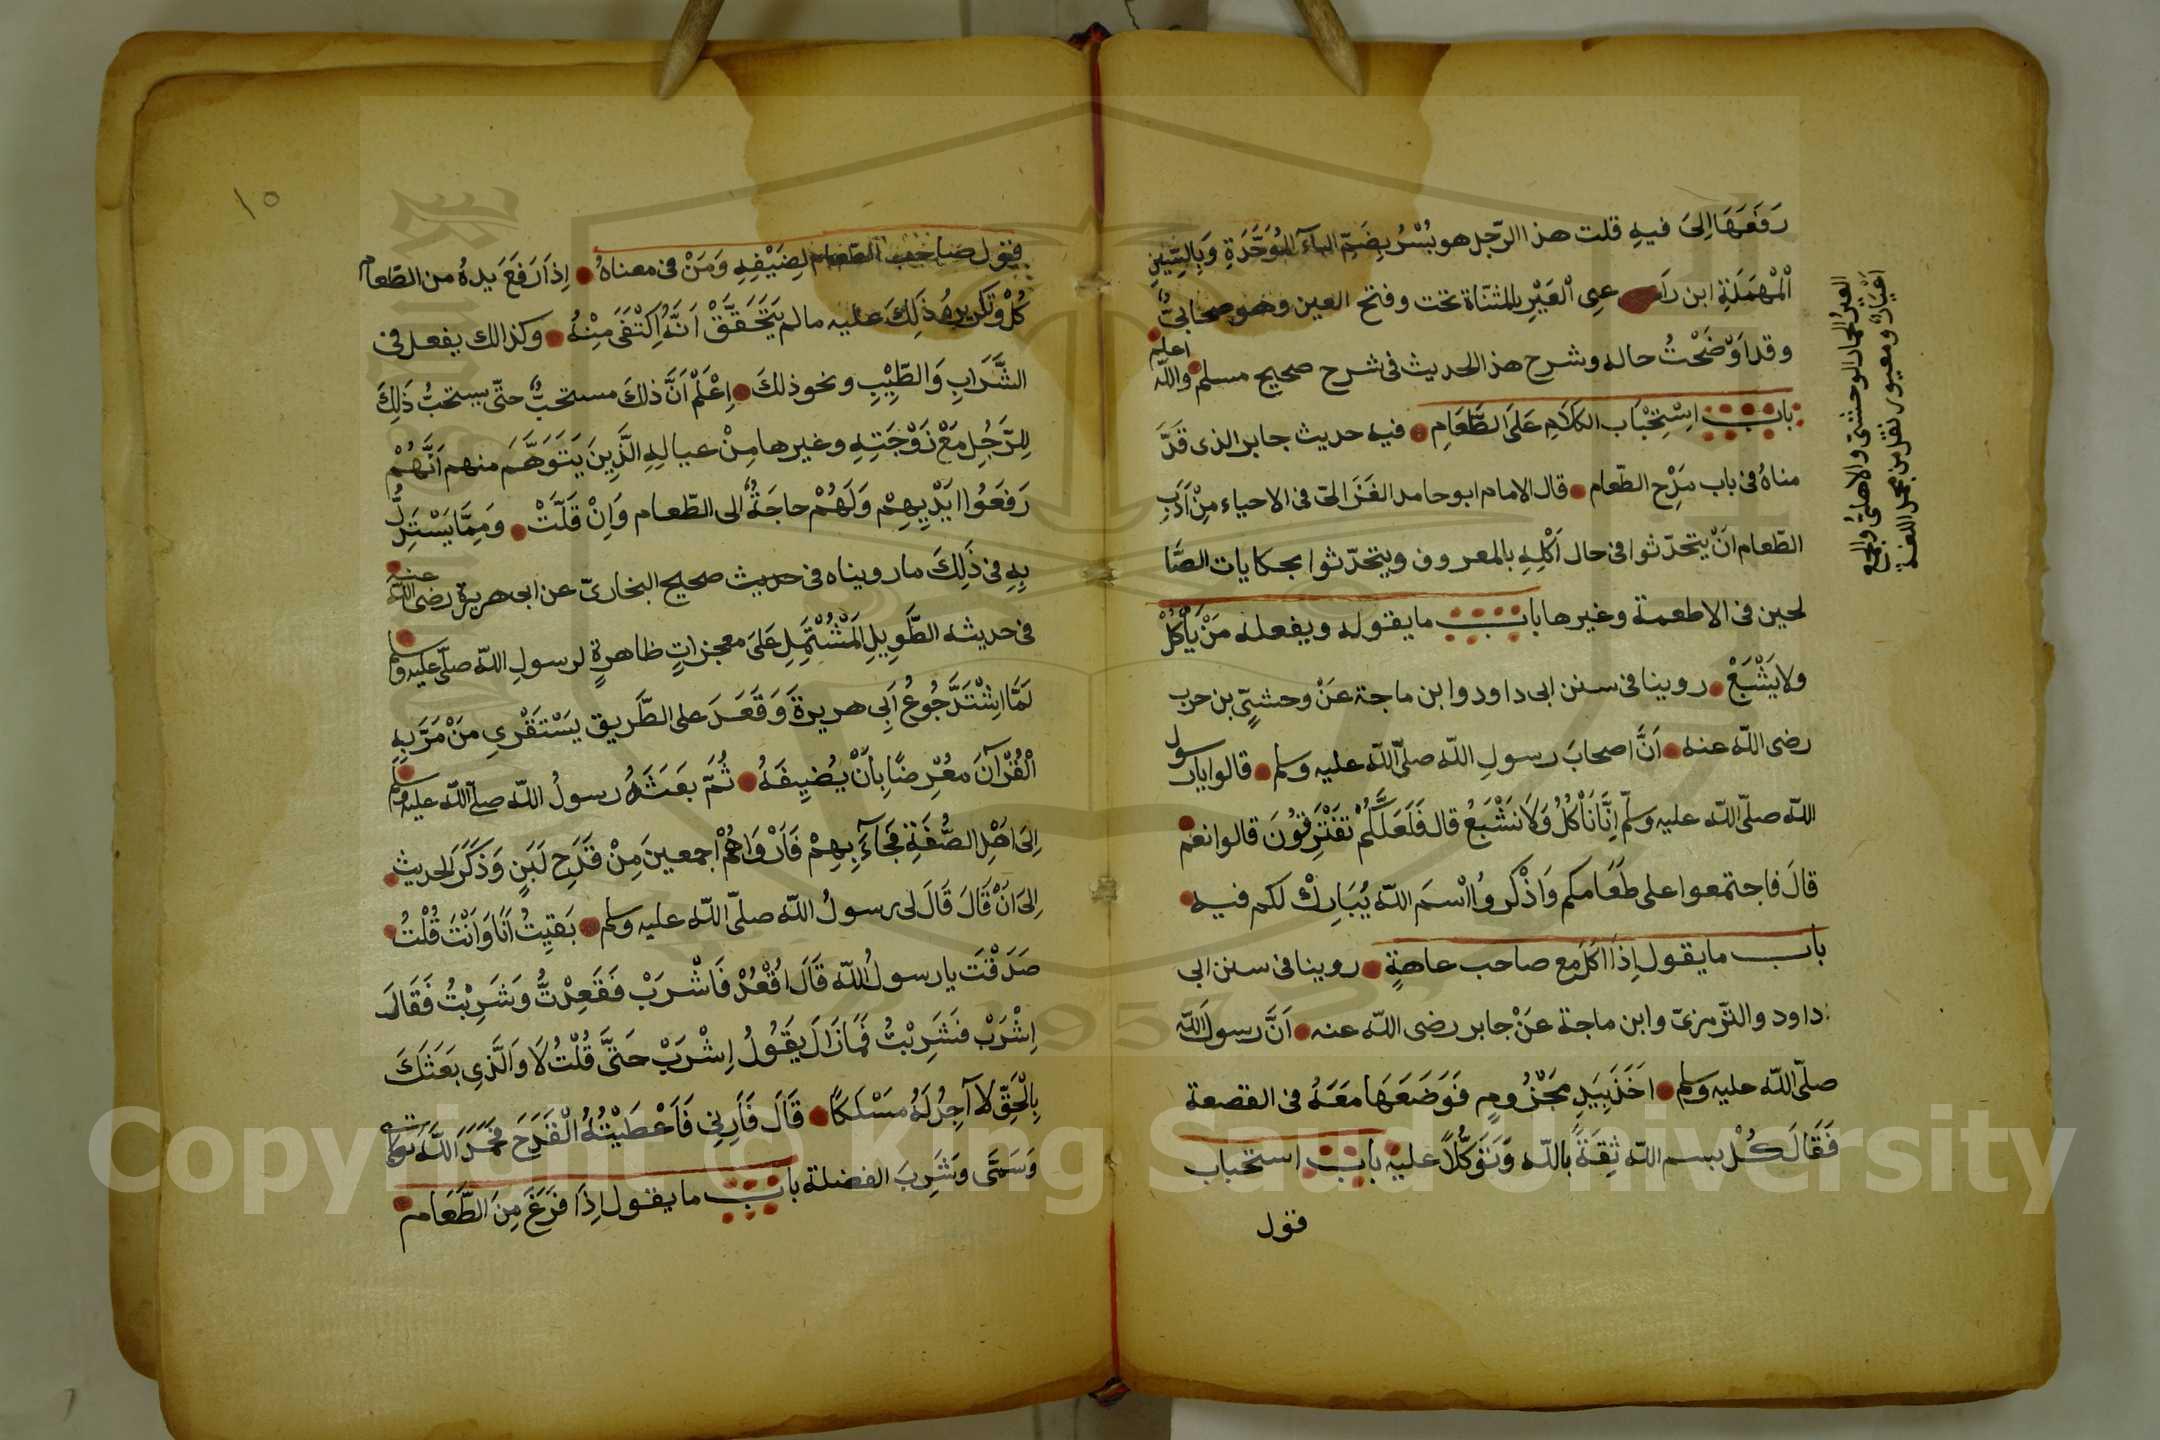 رَفَعَهَا اِلىَ فيهِ قلت هذا الرّجل هو بُسْرُ بِضَمِّ الباءَ المُوَحَّدَةِ وَبِالسِّينِ
الْمُهْمَلَةِ ابن راعى العَيْرِ بالمثنّاة تحت وفتح العين وهو صحابىٌّ
وقد اَوْضَحْتُ حاله وشرح هذا الحديث فى شرح صحيح مسلم والله اعلم
باب اسْتِحْبَاب الكَلَامِ عَلَى الطَّعَامِ فيه حديث جابر الذى قَدَّ
مناهُ فى باب مَدْحِ الطّعام قال الامام ابو حامد الغَزَالىّ فى الاحياء مِنْ اَدَبِ
الطّعام اَنْ يتحدّثوا فى حال اَكْلِهِ بالمعروف ويتحدّثوا بحكايات الصَّا
لحين فى الاطعمة وغيرها باب ما يقوله ويفعله مَنْ يَأْكُلُ
ولا يَشْبَعْ روينا فى سنن ابى داود وابن ماجة عَنْ وحشىِّ بن حرب
رضى الله عنه اَنَّ اصحابَ رسولِ الله صلّى الله عليه وسلم قالوا يا رسول
الله صلّى الله عليه وسلّم اِنَّا نَأْكُلُ وَلَا نَشْبَعُ قال فَلَعَلَّكُمْ تَفْتَرِقُوُنَ قالوا نعم
قالَ فاجتمعوا على طَعَامكم وَاذْكُروُا اسْمَ الله يُبَارِكْ لكم فيه
باب ما يقول اِذَا اكَلَ مع صاحب عاهةٍ روينا فى سنن ابى
داود والترمزىّ وابن ماجة عَنْ جابر رضى الله عنه اَنَّ رسولَ الله
صلّى الله عليه وسلم اَخَذَ بِيَدِ مَجْزُومٍ فَوَضَعَهَا مَعَهُ فى القصعة
فَقَالَ كُلْ بسم الله ثِقَةً بالله وَتَوَكُّلاً عليه باب استحباب
قول
العير الحمار الوحشىّ والاهلىّ والجمع
اعيار ومعيور نقل من مجمل اللغة
١٥
قول صاحب الطعام لِضَيْفِهِ وَمَنْ فى معناهُ اِذَا رَفَعَ يدهُ من الطّعام
كُلْ وتكريرهُ ذَلِكَ عليه مالم يَتَحَقَّقْ اَنَّهُ اكْتَفَى مِنْهُ وكذالك يفعل فى
الشَّرَابِ وَالطِّيْبِ ونحو ذلكَ اِعْلَمْ اَنَّ ذلكَ مستحبٌّ حتّى يستحبُّ ذَلِكَ
لِلرَّجُلِ مَعْ زَوْجَتِهِ وغيرها مِنْ عيالِهِ الَّذِينَ يَتَوَهَّمَ منهم اَنَّهُمْ
رَفَعُوا ايْدِيهِمْ وَلَهُمْ حاجَةٌ الى الطّعام وَاِنْ قَلَّتْ وَمِمَّا يَسْتَدِلُّ
بِهِ فى ذَلِكَ ما رويناه فى حديث صحيح البخارىّ عن ابى هريرة رضى الله عنه
فى حديثه الطَّوِيلِ الْمُشْتَمِلِ عَلىَ معجزاتٍ ظاهرةٍ لرسولِ الله صلّى عليه وسلم
لَمَّا اشْتَدَّ جُوعُ اَبِى هريرةَ وَقَعَدَ على الطَّريق يَسْتَقْرِى مَنْ مَرَّ بِهِ
الْقُرْآنَ مُعْرِضًا بِاَنْ يُضِيفَهُ ثُمَّ بَعَثَهُ رسولُ الله صلّى الله عليه وسلم
اِلىَ اَهْلِ الصُّفَّةِ فَجَاءَ بِهِمْ فَاَرْوَاهُمْ اجمعينَ مِنْ قَدَحِ لَبَنٍ وَذَكَرَ الحديث
اِلىَ اَنْ قَالَ قَالَ لى رسولُ الله صلّى الله عليه وسلم بَقيِتُ اَنَا وَاَنْتَ قُلْتُ
صَدَقْتَ يا رسولَ الله قَالَ اقْعُدْ فَاشْرَبْ فَقَعَدْتُّ وَشَرِبْتُ فَقَالَ
اِشْرَبْ فَشَرِبْتُ فَمَا زَالَ يَقُولُ اِشْرَبْ حَتَّى قُلْتُ لَا وَالَّذِى بَعَثَكَ
بِالْحَقِّ لَا اَجِدُ لَهُ مَسْلَكًا قَالَ فَاَرِنِى فَاَعْطَيْتُهُ الْقَدَحَ فَحَمَدَ اللهَ تعالى
وَسَمَّى وَشَرِبَ الفضلة باب ما يقول اِذَا فَرَغَ مِنَ الطَّعَامِ
Copyright © King Saud University
1957